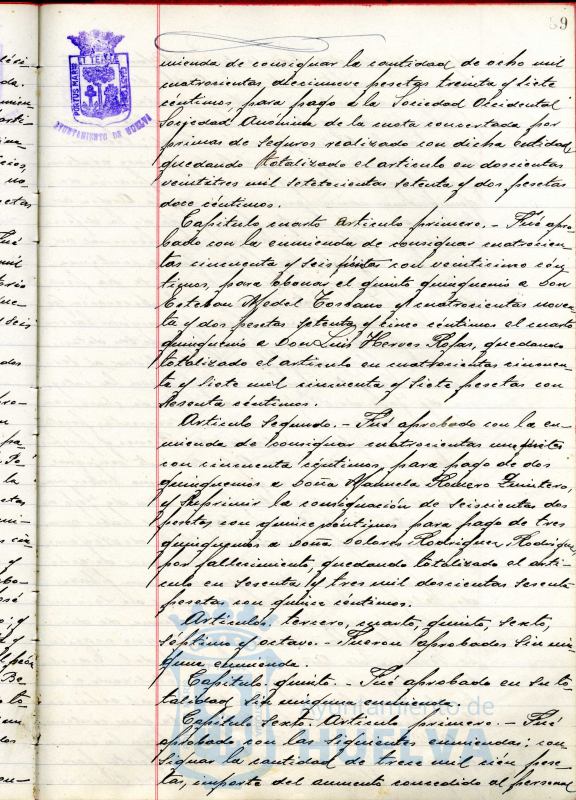 89
PORTUS MARIS
ET TERRE
CUSTODIA
AYUNTAMIENTO DE HUELVA
mienda de consignar la cantidad de ocho mil
cuatrocientas diecinueve pesetas treinta y siete
céntimos, para pago a la Sociedad Occidental
Sociedad Anónima de la cuota concertada por
primas de seguros realizado con dicha entidad,
quedando totalizado el artículo en doscientas
veintitres mil setecientas setenta y dos pesetas
doce céntimos.
Capítulo cuarto Artículo primero. - Fué apro-
bado con la enmienda de consignar cuatrocien-
tas cincuenta y seis pesetas con veinticinco cén-
timos, para abonar el quinto quinquenio a Don
Esteban Medel Toscano y cuatrocientas noven-
ta y dos pesetas setenta y cinco céntimos el cuarto
quinquenio a Don Luis Herves Rojas, quedando
totalizado el artículo en cuatrocientas cincuen-
ta y siete mil cincuenta y siete pesetas con
sesenta céntimos.
Artículo segundo. - Fué aprobado con la en-
mienda de consignar cuatrocientas una pesetas
con cincuenta céntimos para pago de dos
quinquenios a Doña Manuela Romero
y suprimir la consignación de seiscientas dos
pesetas con quince céntimos para pago de tres
quinquenios a Doña Dolores Rodriguez Rodriguez
por fallecimiento, quedando totalizado el artí-
culo en sesenta y tres mil doscientas sesenta
pesetas con quince céntimos.
Artículos, tercero, cuarto, quinto, sexto,
séptimo y octavo. - Fueron aprobados sin nin-
guna enmienda.
Capítulo quinto. - Fué aprobado en su to-
talidad sin ninguna enmienda.
Capítulo sexto. Artículo primero. - Fué
aprobado con las siguientes enmiendas; con-
signar la cantidad de trece mil cien pese-
tas, importe del aumento concedido al personal
Ayuntamiento de
HUELVA